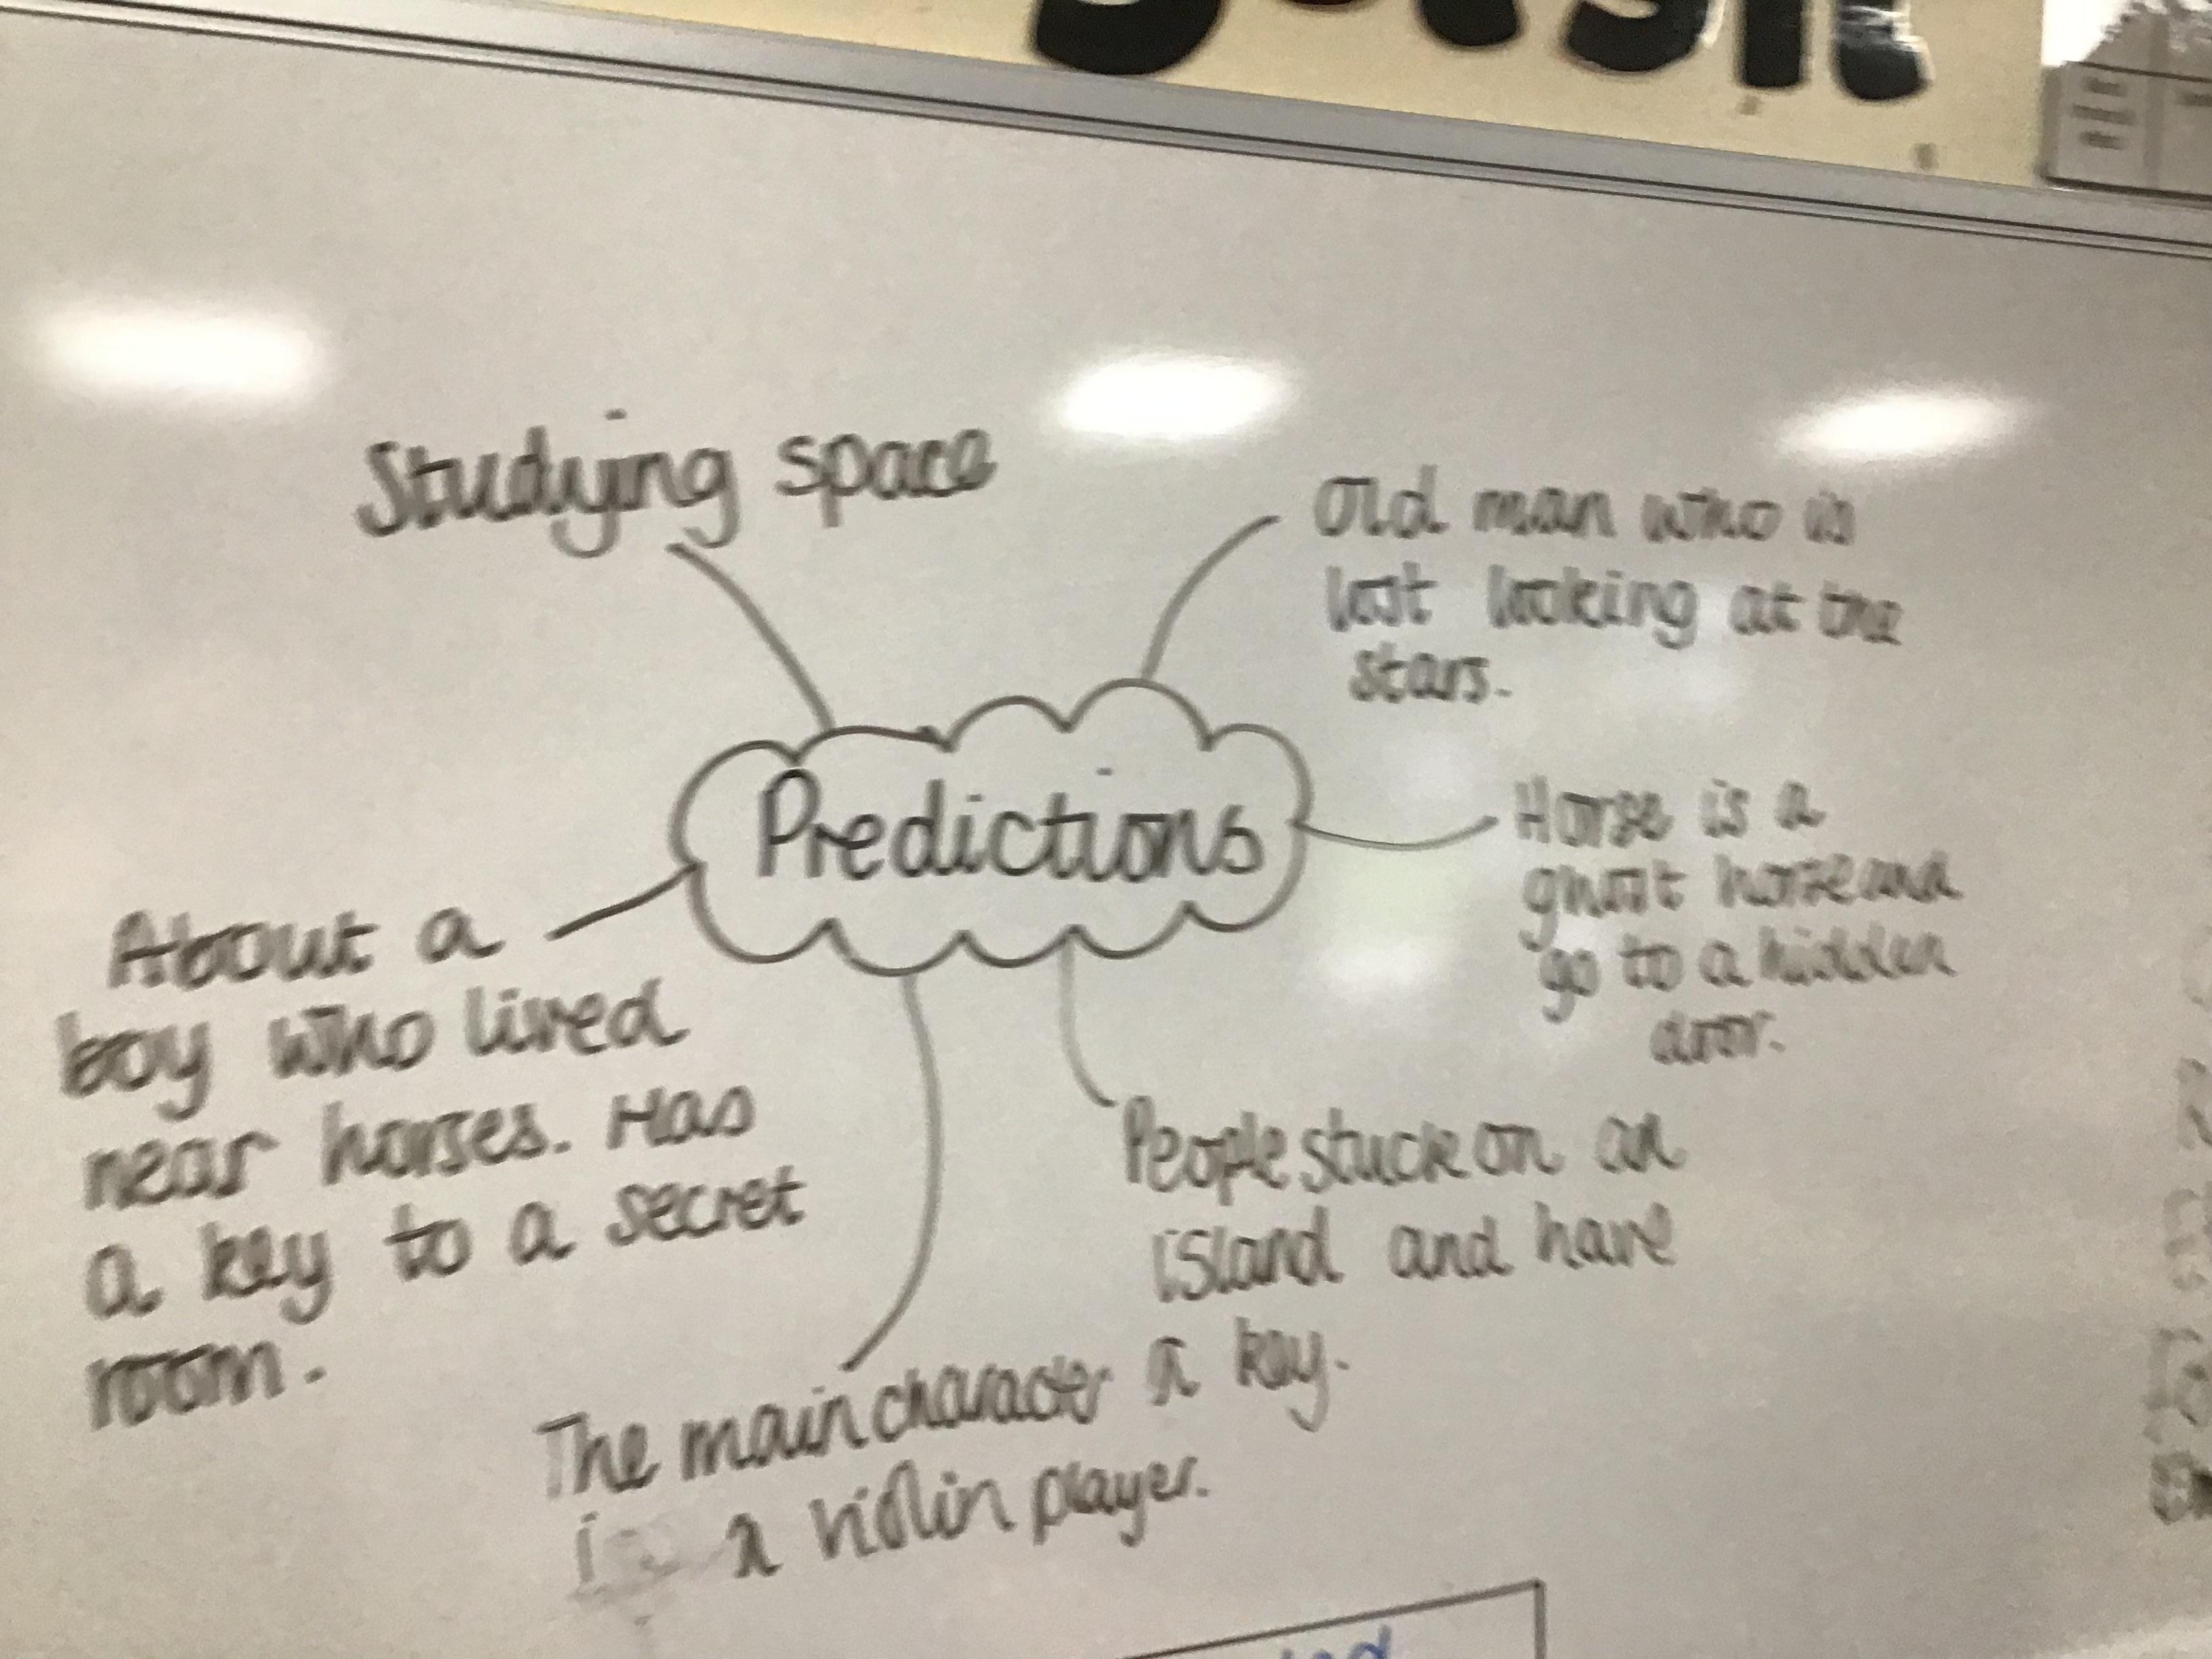 Studying space
Old man who is
lost looking at the
stars.
Predictions
Horse is a
ghost horse and
go to a hidden
door.
About a
boy who lived
near horses. Has
a key to a secret
room.
People stuck on an
island and have
a key.
The main character
is a violin player.